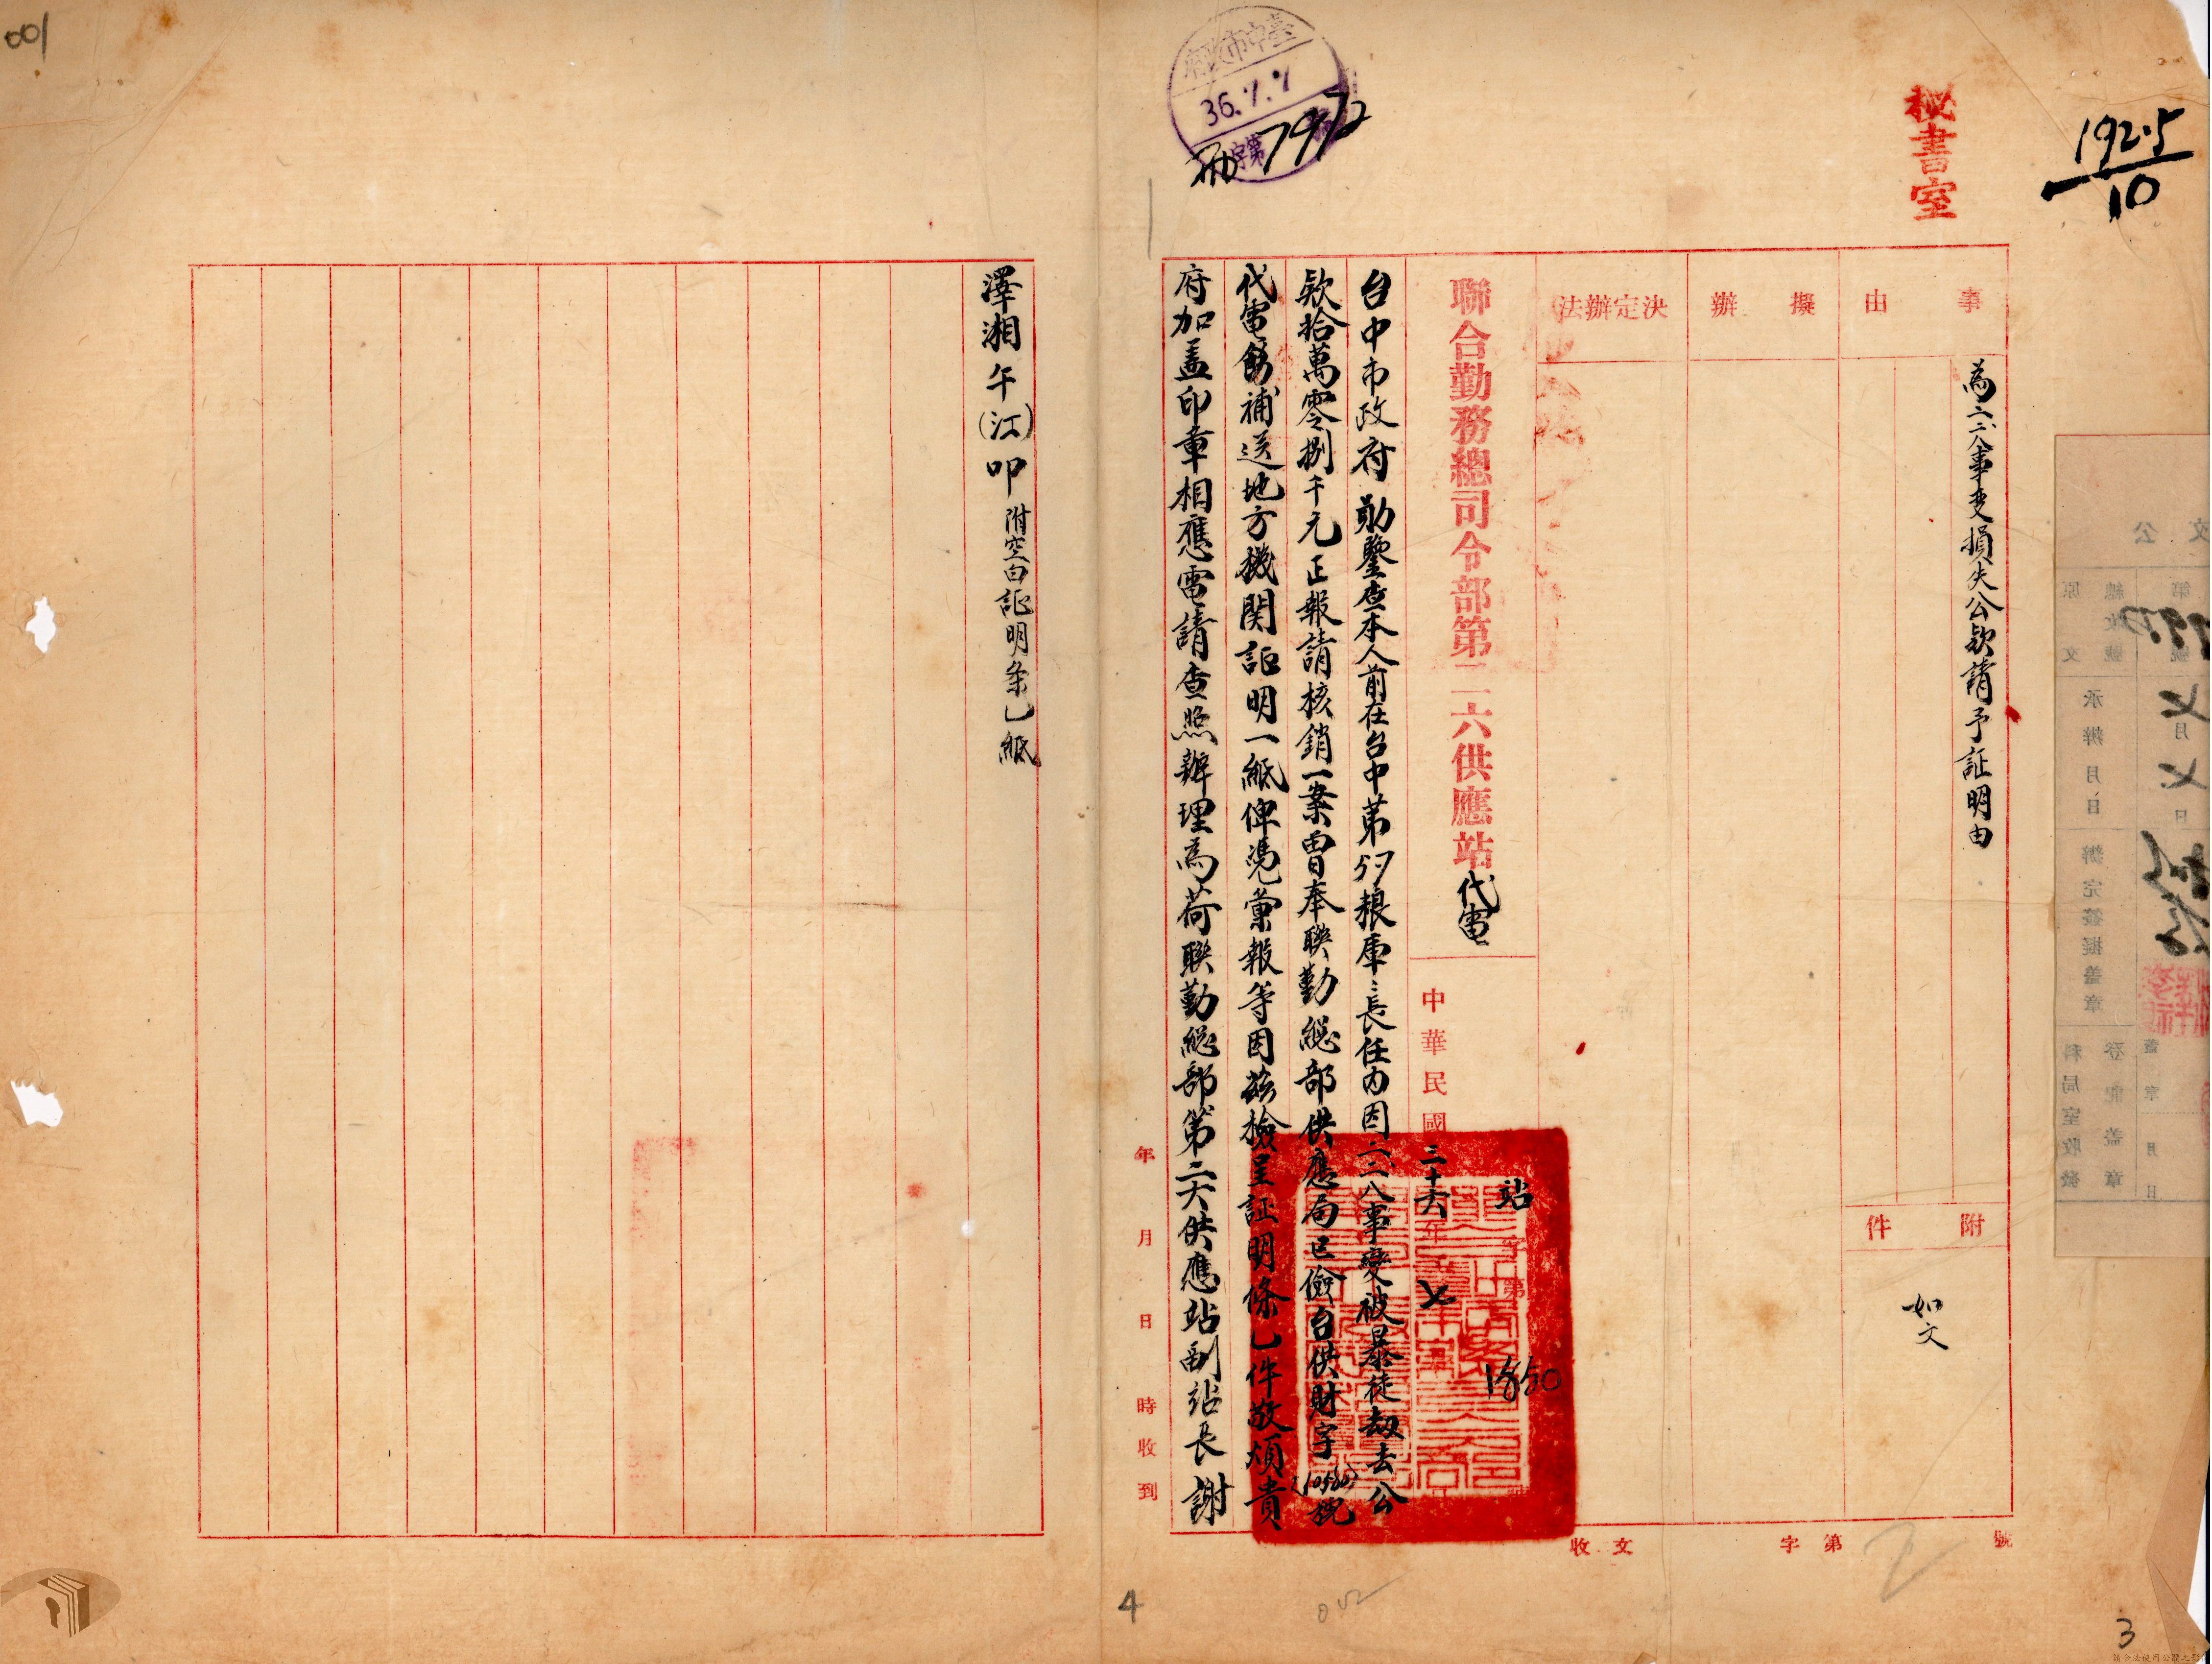 1925
10
秘書室
事由
為二二八事变損失公欵請予証明由
附件
如文
擬辦
決定辦法
號
字第
收文
聯合勤務總司令部第二六供應站代電
站字第1850
中華民國三十六年七
台中市政府勛鑒查本人前在台中第57粮庫長任內因二二八事變被暴徒劫去公
欵拾萬零捌千元正報請核銷一案曾奉聯勤總部供應局已儉台供財字號
代電飭補送地方機関証明一紙俾憑彙報等因茲檢呈証明條乙件敬煩貴
府加盖印章相應電請查照辦理為荷聯勤總部第二六供應站副站長謝
年月日時收到
澤湘午(江)叩附空白証明条乙紙
臺中市政府
36.7.7
字第
7972
001
4
3